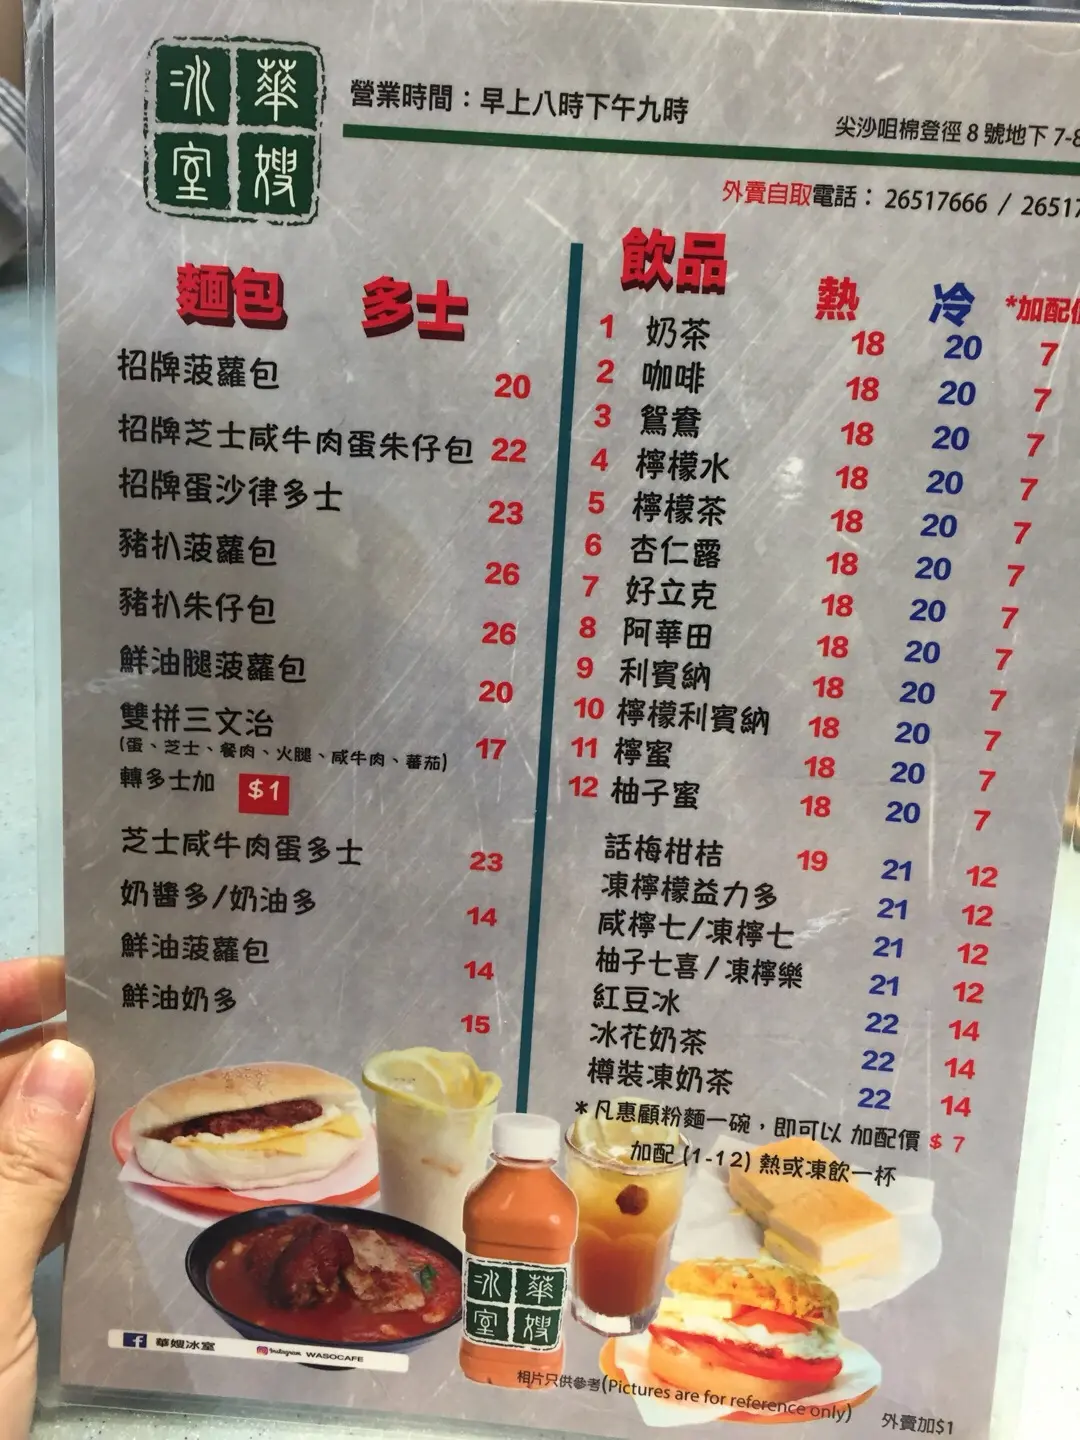 華嫂冰室
營業時間：早上八時下午九時
尖沙咀棉登徑 8 號地下 7-8
外賣自取電話： 26517666 / 26517
麵包 多士
招牌菠蘿包 20
招牌芝士咸牛肉蛋朱仔包 22
招牌蛋沙律多士 23
豬扒菠蘿包 26
豬扒朱仔包 26
鮮油腿菠蘿包 20
雙拼三文治 17
(蛋、芝士、餐肉、火腿、咸牛肉、蕃茄)
轉多士加 $1
芝士咸牛肉蛋多士 23
奶醬多/奶油多 14
鮮油菠蘿包 14
鮮油奶多 15
飲品 熱 冷 *加配價
1 奶茶 18 20 7
2 咖啡 18 20 7
3 鴛鴦 18 20 7
4 檸檬水 18 20 7
5 檸檬茶 18 20 7
6 杏仁露 18 20 7
7 好立克 18 20 7
8 阿華田 18 20 7
9 利賓納 18 20 7
10 檸檬利賓納 18 20 7
11 檸蜜 18 20 7
12 柚子蜜 18 20 7
話梅柑桔 19 21 12
凍檸檬益力多 21 12
咸檸七/凍檸七 21 12
柚子七喜/凍檸樂 21 12
紅豆冰 22 14
冰花奶茶 22 14
樽裝凍奶茶 22 14
*凡惠顧粉麵一碗，即可以 加配價 $ 7
加配 (1-12) 熱或凍飲一杯
華嫂冰室
華嫂冰室 Instagram WASOCAFE
相片只供參考(Pictures are for reference only)
外賣加$1